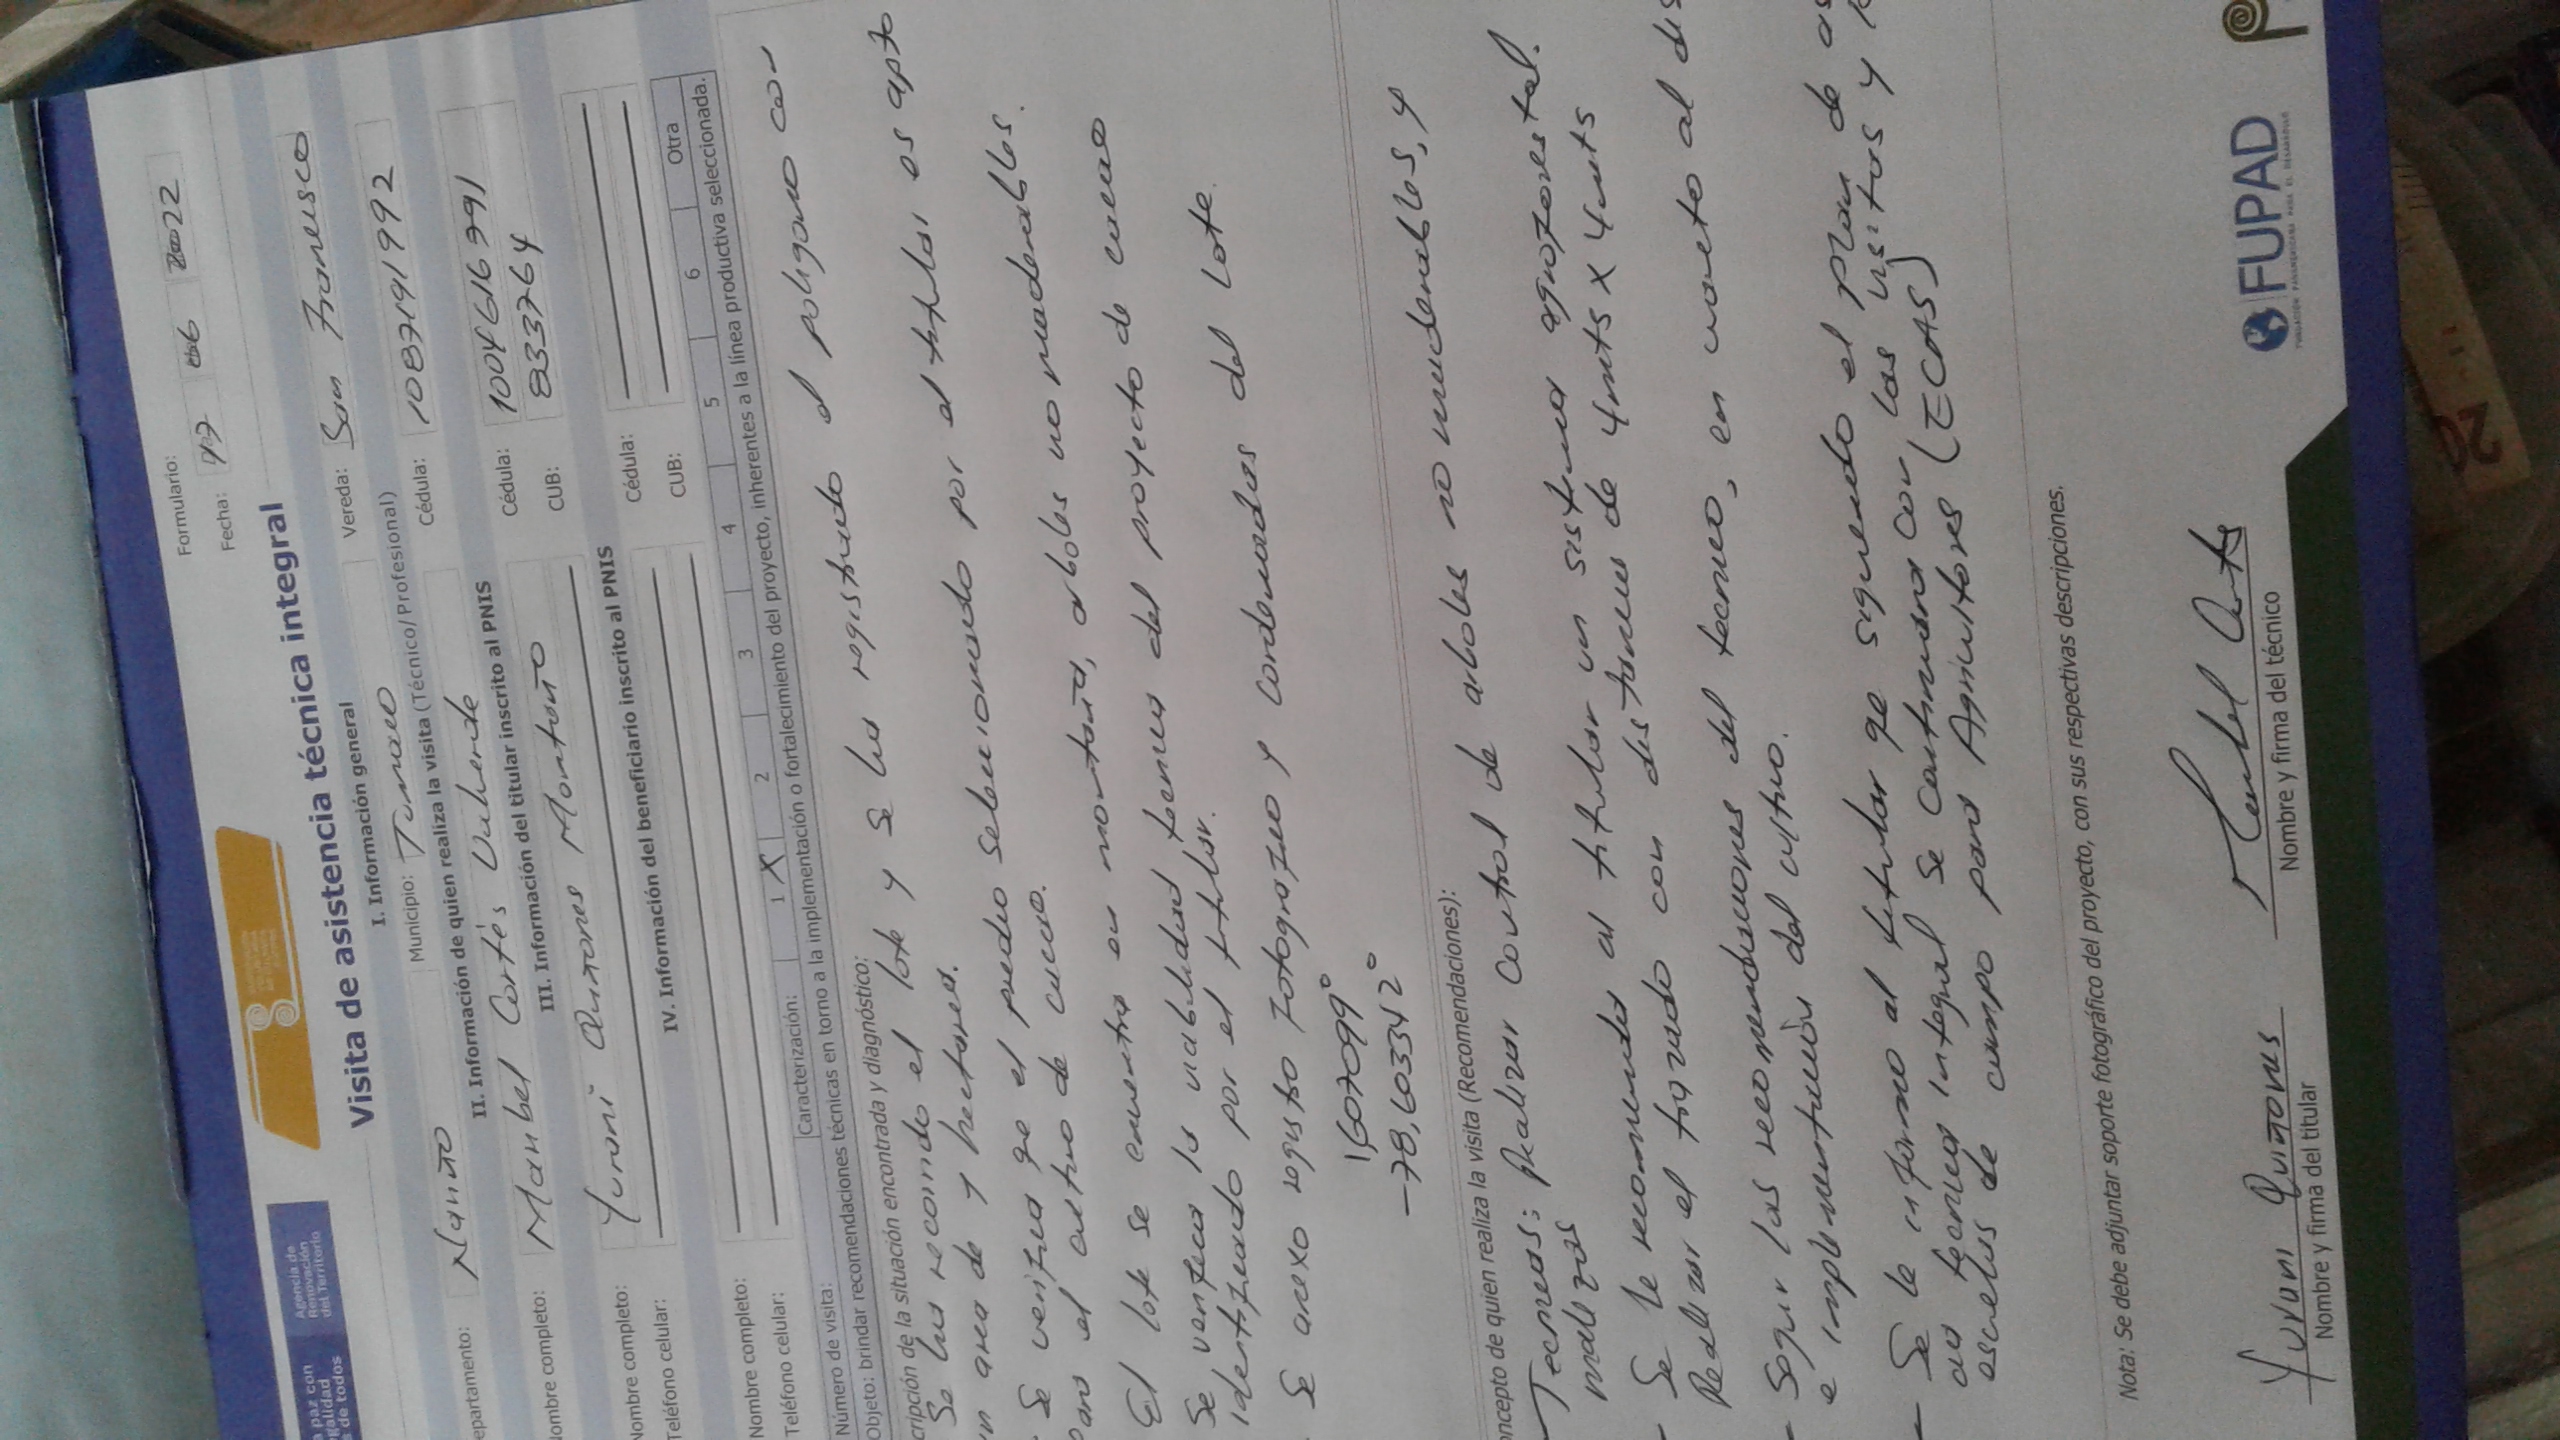 Agencia de
Renovación
del Territorio
paz con
legalidad
de todos
Formulario:
Fecha: 07 06 2022
Visita de asistencia técnica integral
I. Información general
epartamento: Nariño Municipio: Tumaco Vereda: San Francisco
II. Información de quien realiza la visita (Técnico/Profesional)
Nombre completo: Maribel Cortés Valverde Cédula: 1087191992
III. Información del titular inscrito al PNIS
Nombre completo: Yurani Quiñones Montaño Cédula: 1004616391
Teléfono celular: CUB: 8333764
IV. Información del beneficiario inscrito al PNIS
Nombre completo: Cédula:
Teléfono celular: CUB:
Número de visita: Caracterización: 1 X 2 3 4 5 6 Otra
Objeto: brindar recomendaciones técnicas en torno a la implementación o fortalecimiento del proyecto, inherentes a la línea productiva seleccionada.
cripción de la situación encontrada y diagnóstico:
Se ha recorrido el lote y se ha registrado el poligano con
un area de y hectareas.
Se verifica qe el predio seleccionado por el titular es apto
para el cultivo de cacao.
El lote se encuentra en montaña, arboles no maderables.
Se verifica la viabilidad tecnica del proyecto de cacao
identificado por el titular.
Se anexo registro fotografico y cordenadas del lote.
1,607099°
-78,6033342°
oncepto de quien realiza la visita (Recomendaciones):
- Tecnicas: Realizar control de arboles no maderables, y
malezas
- Se le recomienda al titular un sistema agroforestal.
Realizar el trazado con distancias de 4mts x 4mts
- Seguir las recomendaciones del tecnico, en cuanto al dis
e implementación del cultivo.
- Se le informo al titular qe siguiendo el plan de as
cia tecnica integral se continuara con las visitas y
escuelas de campo para Agricultores (ECAS)
Nota: Se debe adjuntar soporte fotográfico del proyecto, con sus respectivas descripciones.
Yurani Quiñones
Nombre y firma del titular
Maribel Cortés
Nombre y firma del técnico
FUPAD
FUNDACIÓN PANAMERICANA PARA EL DESARROLLO